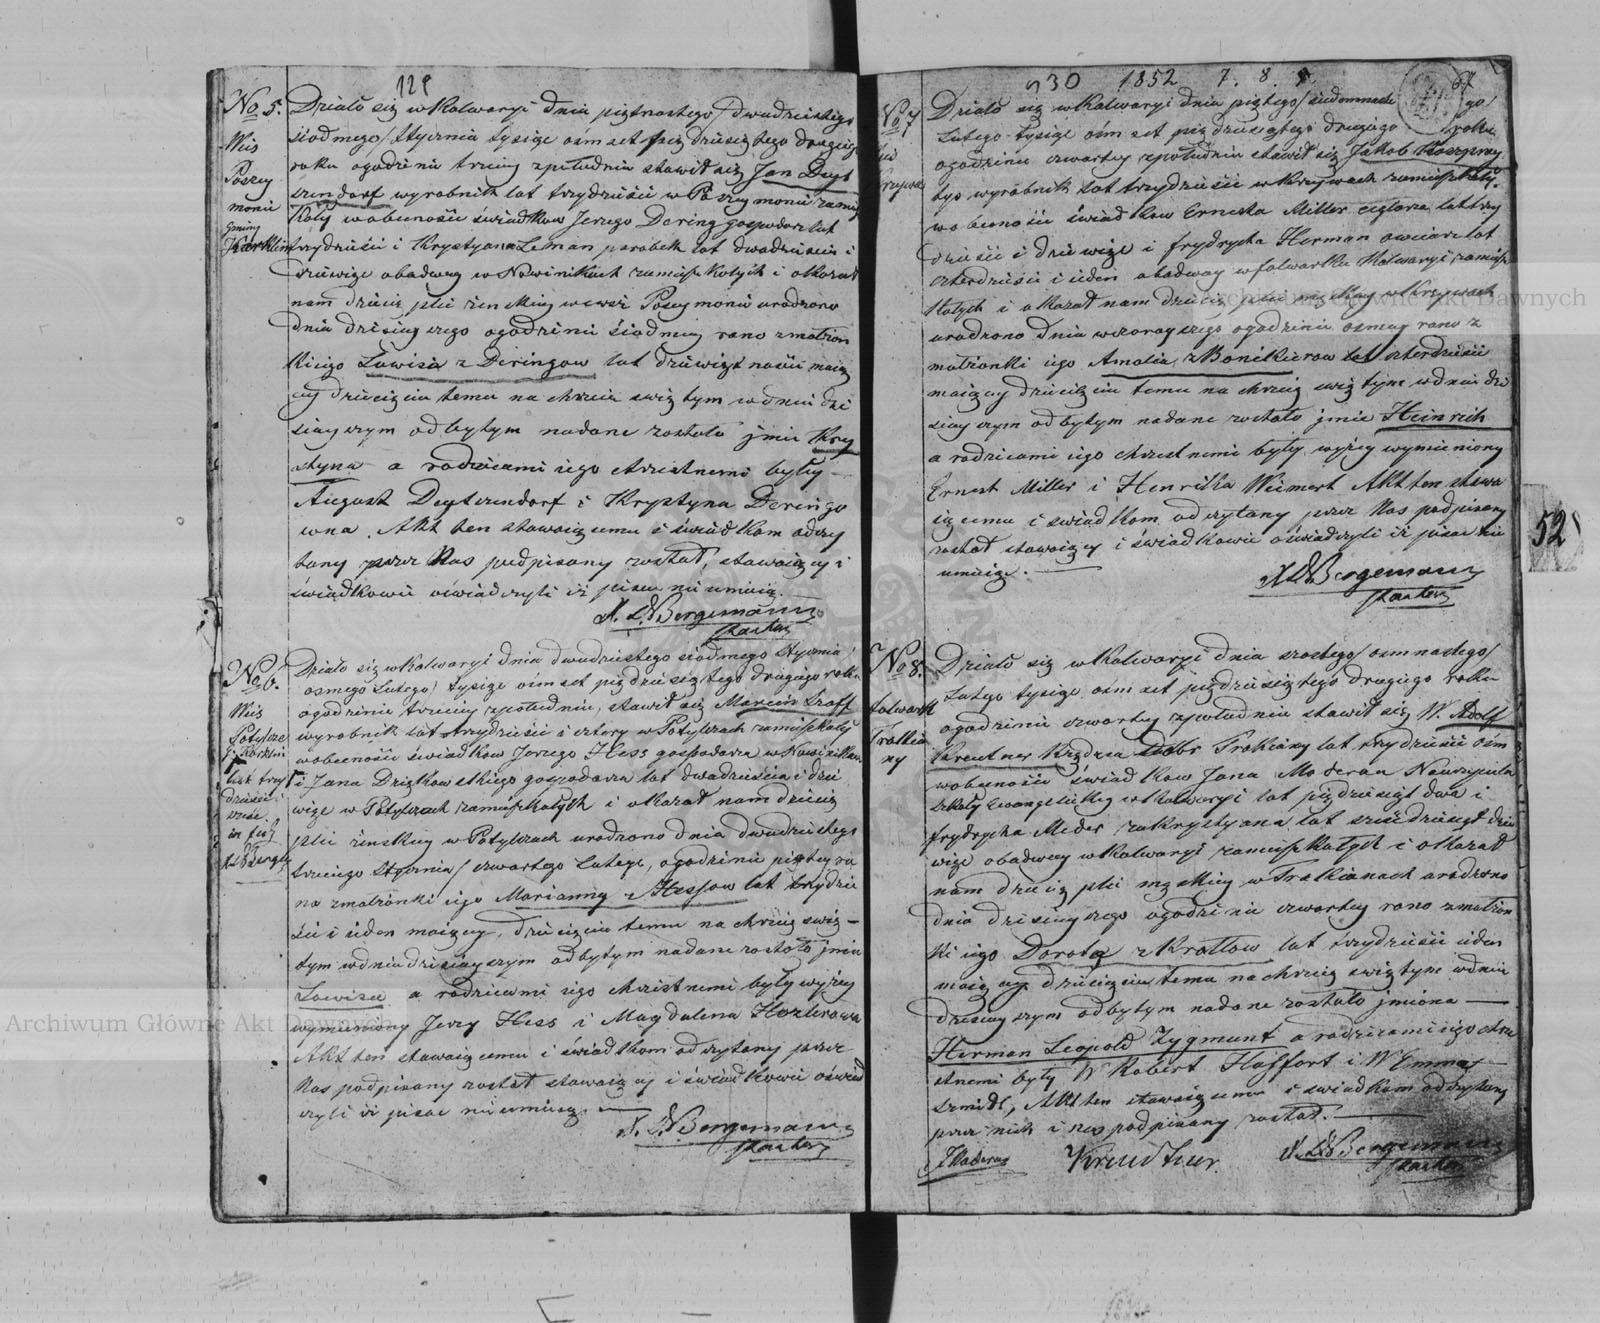 129
No 5.
Wieś
Poszymonie
Gminy
Kirklin
Działo się w Kalwaryi dnia piętnastego / dwudziestego
siodmego / Stycznia tysiąc ośmset piędziesiątego drugiego
roku o godzinie trzeciey z południa stawił się Jan Deyt
szendorf wyrobnik lat trzydzieści w Poszymoniu zamiesz
kały w obecności świadkow Jerzego Dering gospodarz lat
trzydzieści i Krystyana Leman parobek lat dwadzieścia i
dziewięć obadway w Nowinikach zamieszkałych i okazał
nam dziecię płci żeńskiey we wsi Poszymoniu urodzone
dnia dzisieyszego o godzinie siodmey rano z małżon
ki iego Lowisa z Deringow lat dziewiętnaście maią
cey dziecięciu temu na chrzcie świętym w dniu dzi
sieyszym odbytym nadane zostało imie Kry
styna a rodzicami iego chrzestnemi byli
August Deytszendorf i Krystyna Deringo
wna. Akt ten stawaiącemu i świadkom odczy
tany przez Nas podpisany został, stawaiący i
świadkowie oświadczyli iż pisać nie umieią.
X. L. W Bergemann
Pastor
No 6.
Wieś
Potylcze
Działo się w Kalwaryi dnia dwudziestego siodmego Stycznia /
osmego Lutego / tysiąc ośmset piędziesiątego drugiego roku
o godzinie trzeciey z południa, stawił się Marcin Graff
wyrobnik lat trzydzieści i cztery w Potylczach zamieszkały
w obecności świadkow Jerzego Hess gospodarza w Nowinikach
i Jana Dziękowskiego gospodarza lat dwadzieścia i dzie
więć w Potylczach zamieszkałych i okazał nam dziecię
płci żeńskiey w Potylczach urodzone dnia dwudziestego
trzeciego Stycznia / czwartego Lutego, o godzinie piątey ra
no z małżonki iego Marianny z Hessow lat trzydzie
ści i ieden maiącey, dziecięciu temu na chrzcie świę
tym w dniu dzisieyszym odbytym nadane zostało imie
Lowisa a rodzicami iego chrzestnemi byli wyżey
wymieniony Jerzy Hess i Magdalena Hozlerowa
Akt ten stawaiącemu i świadkom odczytany przez
Nas podpisany został stawaiący i świadkowie oświad
czyli iż pisać nie umieią.
X. L. W Bergemann
Pastor
930 1852 7. 8. 67
No 7
Wieś
Krzywa
Działo się w Kalwaryi dnia piątego / siedemnaste go /
Lutego tysiąc ośm set piędziesiątego drugiego roku
o godzinie czwartey z południa stawił się Jakob
wyrobnik lat trzydzieści w Krzywach zamieszkały.
w obecności świadkow Ernesta Miller ceglarza lat trzy
dzieści i dziewięć i Frydrycha Herman owczarz lat
czterdzieści i ieden obadway w folwarku Kalwaryi zamiesz
kałych i okazał nam dziecię płci męskiey w Krzywach
urodzone dnia wczorayszego o godzinie osmey rano z
małżonki iego Amalia z Bonikierow lat czterdzieści
maiącey dziecięciu temu na chrzcie świętym w dniu dzi
sieyszym odbytym nadane zostało imie Heinrich
a rodzicami iego chrzestnemi byli wyżey wymieniony
Ernest Miller i Henrika Weimert Akt ten stawa
iącemu i świadkom odczytany przez Nas podpisany
został stawaiący i świadkowie oświadczyli iż pisać nie
umieią.
X. L. W Bergemann
Pastor
52
No 8.
folwark
Trakia
ny
Działo się w Kalwaryi dnia szostego / osmnastego /
Lutego tysiąc ośm set piędziesiątego drugiego roku
o godzinie czwartey z południa stawił się W. Adolf
Kreutner Rządca dobr Trakiany lat trzydzieści ośm
w obecności świadkow Jana Moderau Nauczyciela
szkoły Ewangelickiey w Kalwaryi lat pięćdziesiąt dwa i
Frydrycha Meder zakrystyana lat sześćdziesiąt dzie
więć obadway w Kalwaryi zamieszkałych i okazał
nam dziecię płci męskiey w Trakianach urodzone
dnia dzisieyszego o godzinie czwartey rano z małżon
ki iego Dorota z Krallow lat trzydzieści ieden
maiącey dziecięciu temu na chrzcie świętym w dniu
dzisieyszym odbytym nadane zostało imiona
Herman Leopold Zygmunt a rodzicami iego chrze
stnemi byli W Robert Haffort i W Emma
Szmidt, Akt ten stawaiącemu i świadkom odczytany
przez nich i nas podpisany został.
JModerau Kreudtner. X. L. W Bergemann
Pastor
Archiwum Główne Akt Dawnych
Archiwum Główne Akt Dawnych